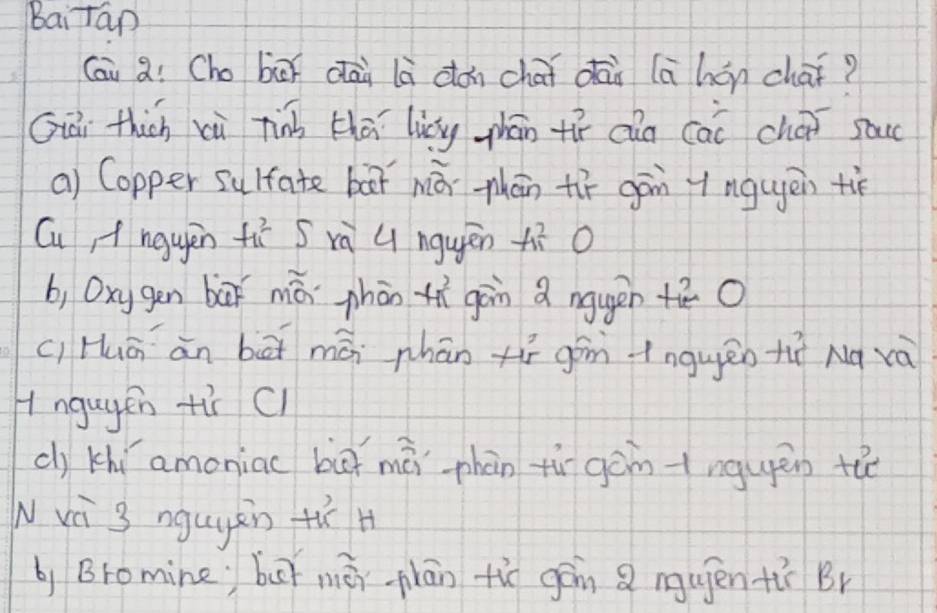 Bài Tập
Câu 2: Cho biết đâu là đơn chất đâu là hợp chất?
Giải thích và tính khối lượng phân tử của các chất sau
a) Copper sulfate biết mỗi phân tử gồm 1 nguyên tử
Cu, 1 nguyên tử S và 4 nguyên tử O
b, Oxygen biết mỗi phân tử gồm 2 nguyên tử O
c) Muối ăn biết mỗi phân tử gồm 1 nguyên tử Na và
1 nguyên tử Cl
d) Khí amoniac biết mỗi phân tử gồm 1 nguyên tử
N và 3 nguyên tử H
b, Bromine; biết mỗi phân tử gồm 2 nguyên tử Br